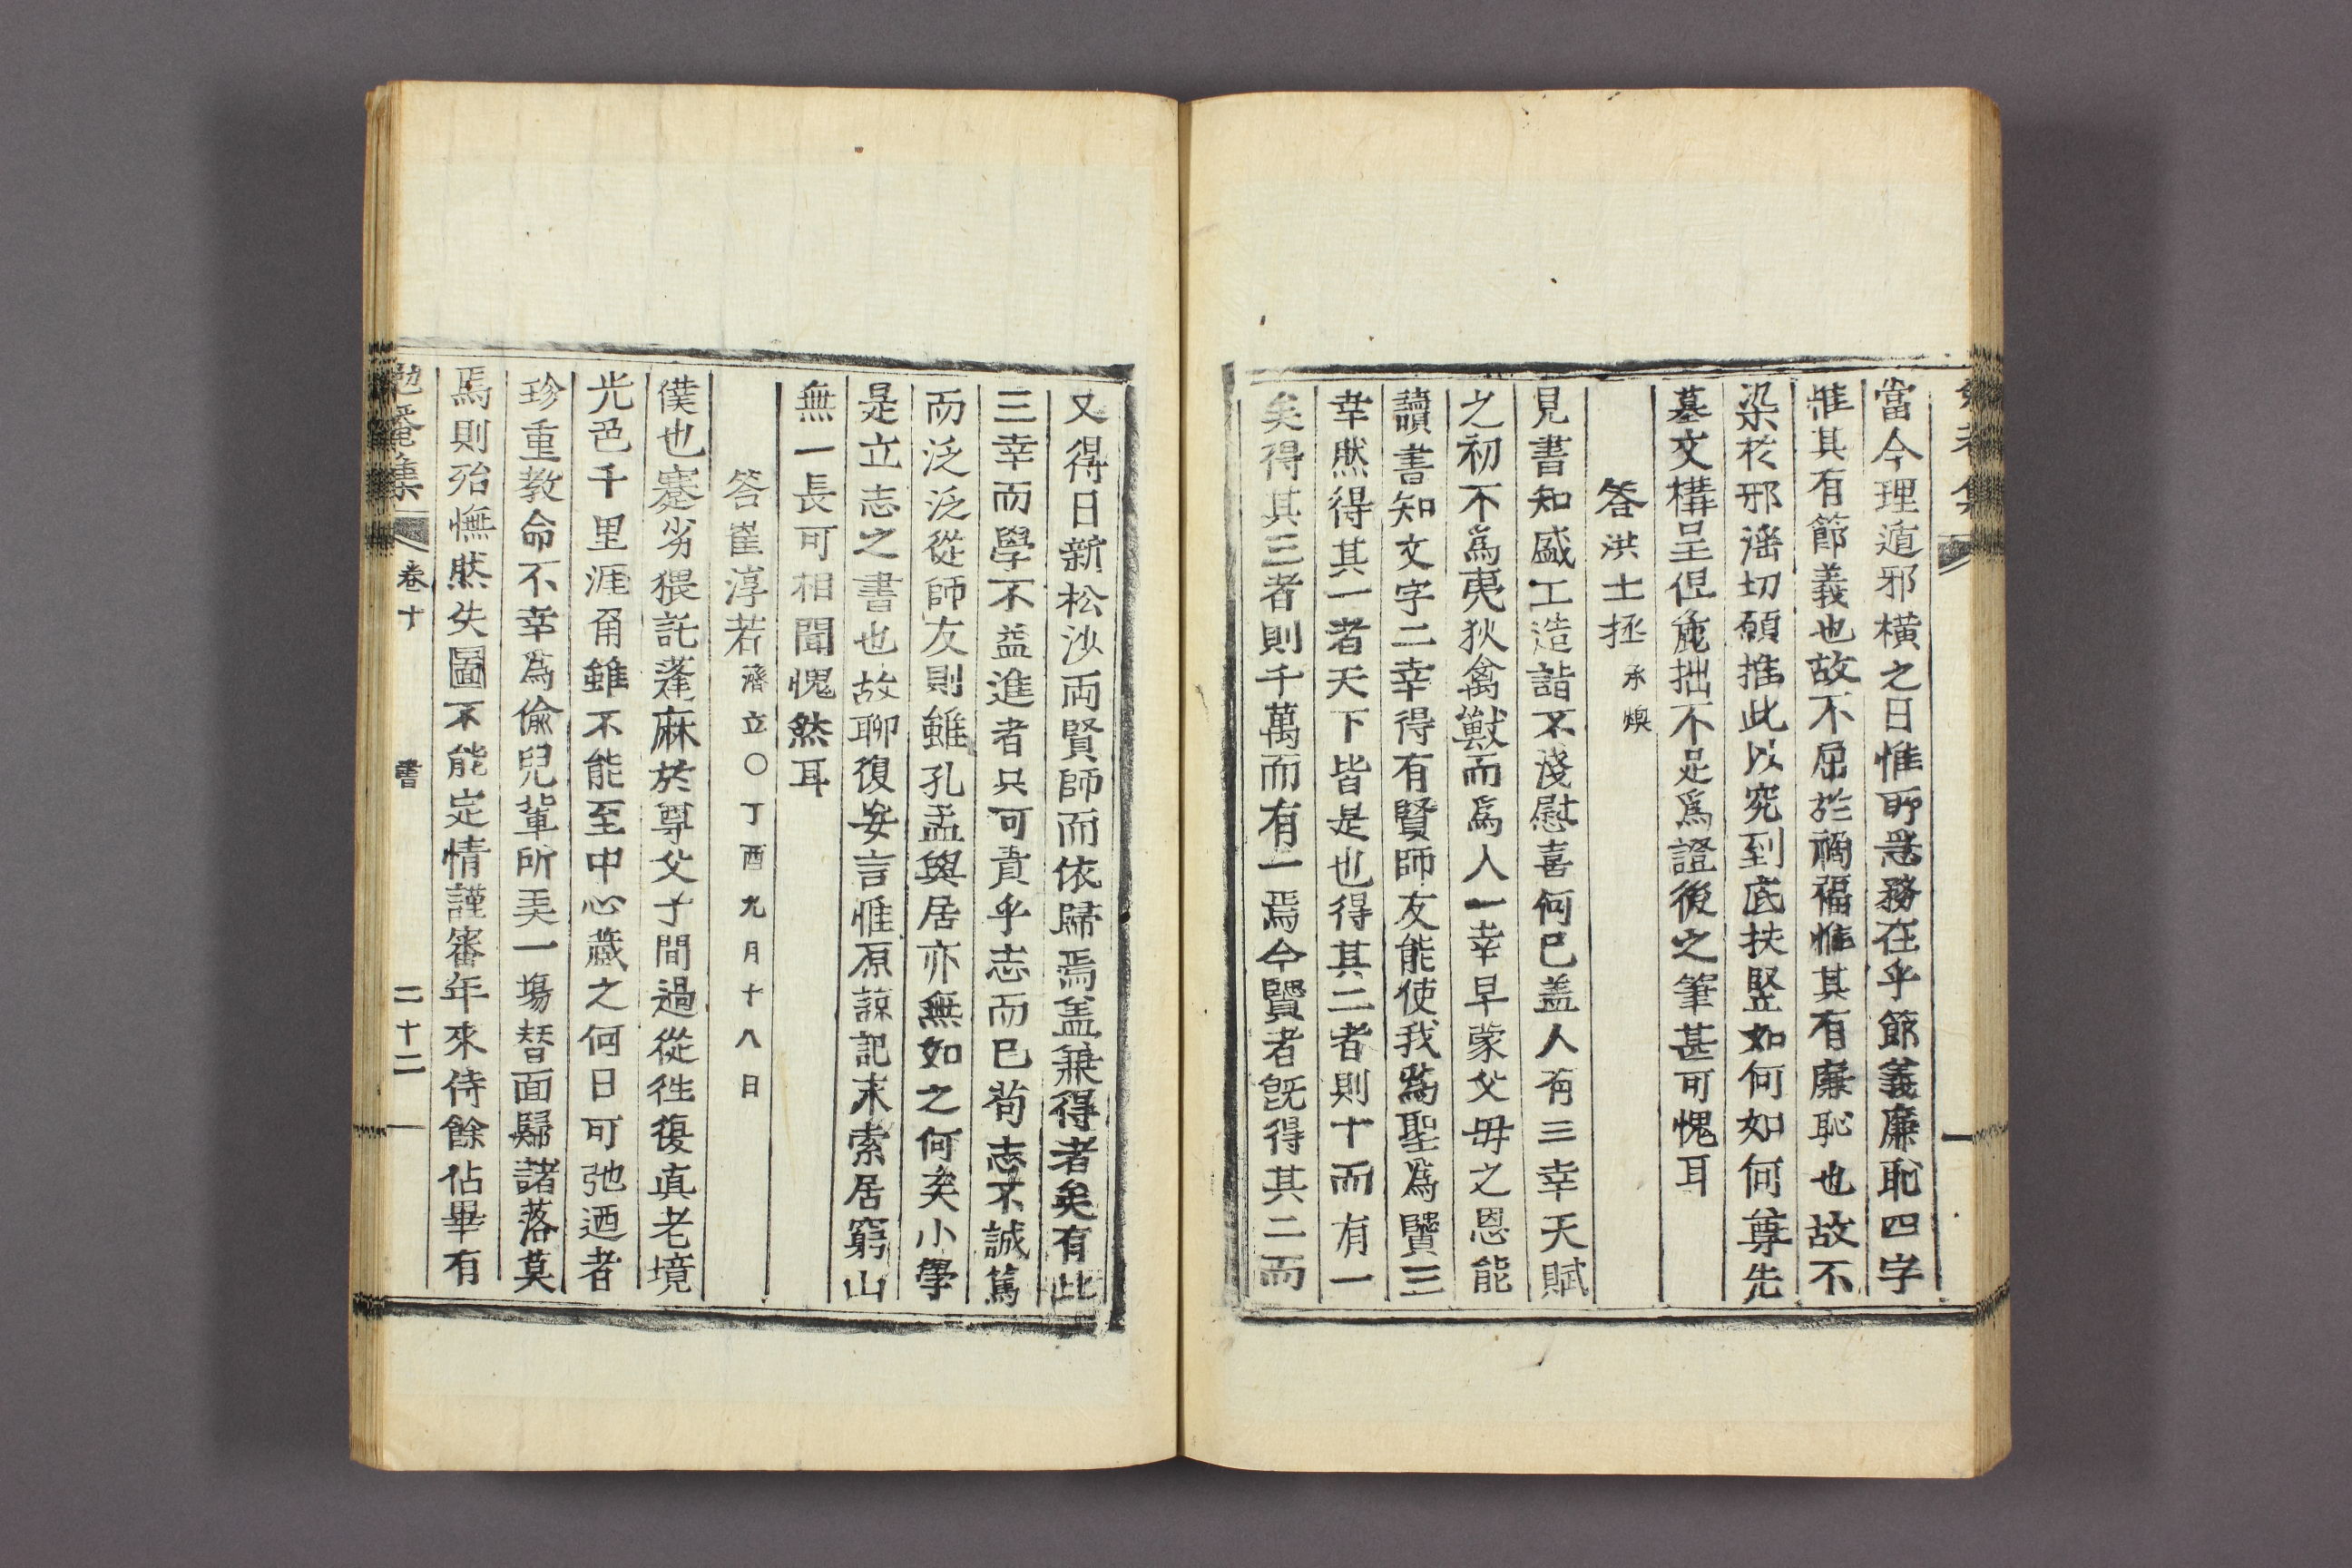 當今理遁邪橫之日惟所急務在乎節義廉恥四字
惟其有節義也故不屈於禍福惟其有廉恥也故不
染於邪淫切願推此以究到底扶竪如何如何尊先
墓文構呈但麁拙不足爲證後之筆甚可愧耳
答洪士拯 承燠
見書知盛工造詣不淺慰喜何已盖人有三幸天賦
之初不爲夷狄禽獸而爲人一幸早蒙父母之恩能
讀書知文字二幸得有賢師友能使我爲聖爲賢三
幸然得其一者天下皆是也得其二者則十而有一
矣得其三者則千萬而有一焉今賢者旣得其二而
又得日新松沙両賢師而依歸焉盖兼得者矣有此
三幸而學不益進者只可責乎志而已苟志不誠篤
而泛泛從師友則雖孔孟與居亦無如之何矣小學
是立志之書也故聊復妄言惟原諒記末索居窮山
無一長可相聞愧然耳
答崔淳若 濟立○丁酉九月十八日
僕也蹇劣猥託蓬麻於尊父子間過從徃復真老境
光色千里涯角雖不能至中心藏之何日可弛迺者
珍重教命不幸爲偸兒軰所弄一塲替面歸諸落莫
焉則殆憮然失圖不能定情謹審年來侍餘佔畢有
勉菴集 卷十 書 二十二